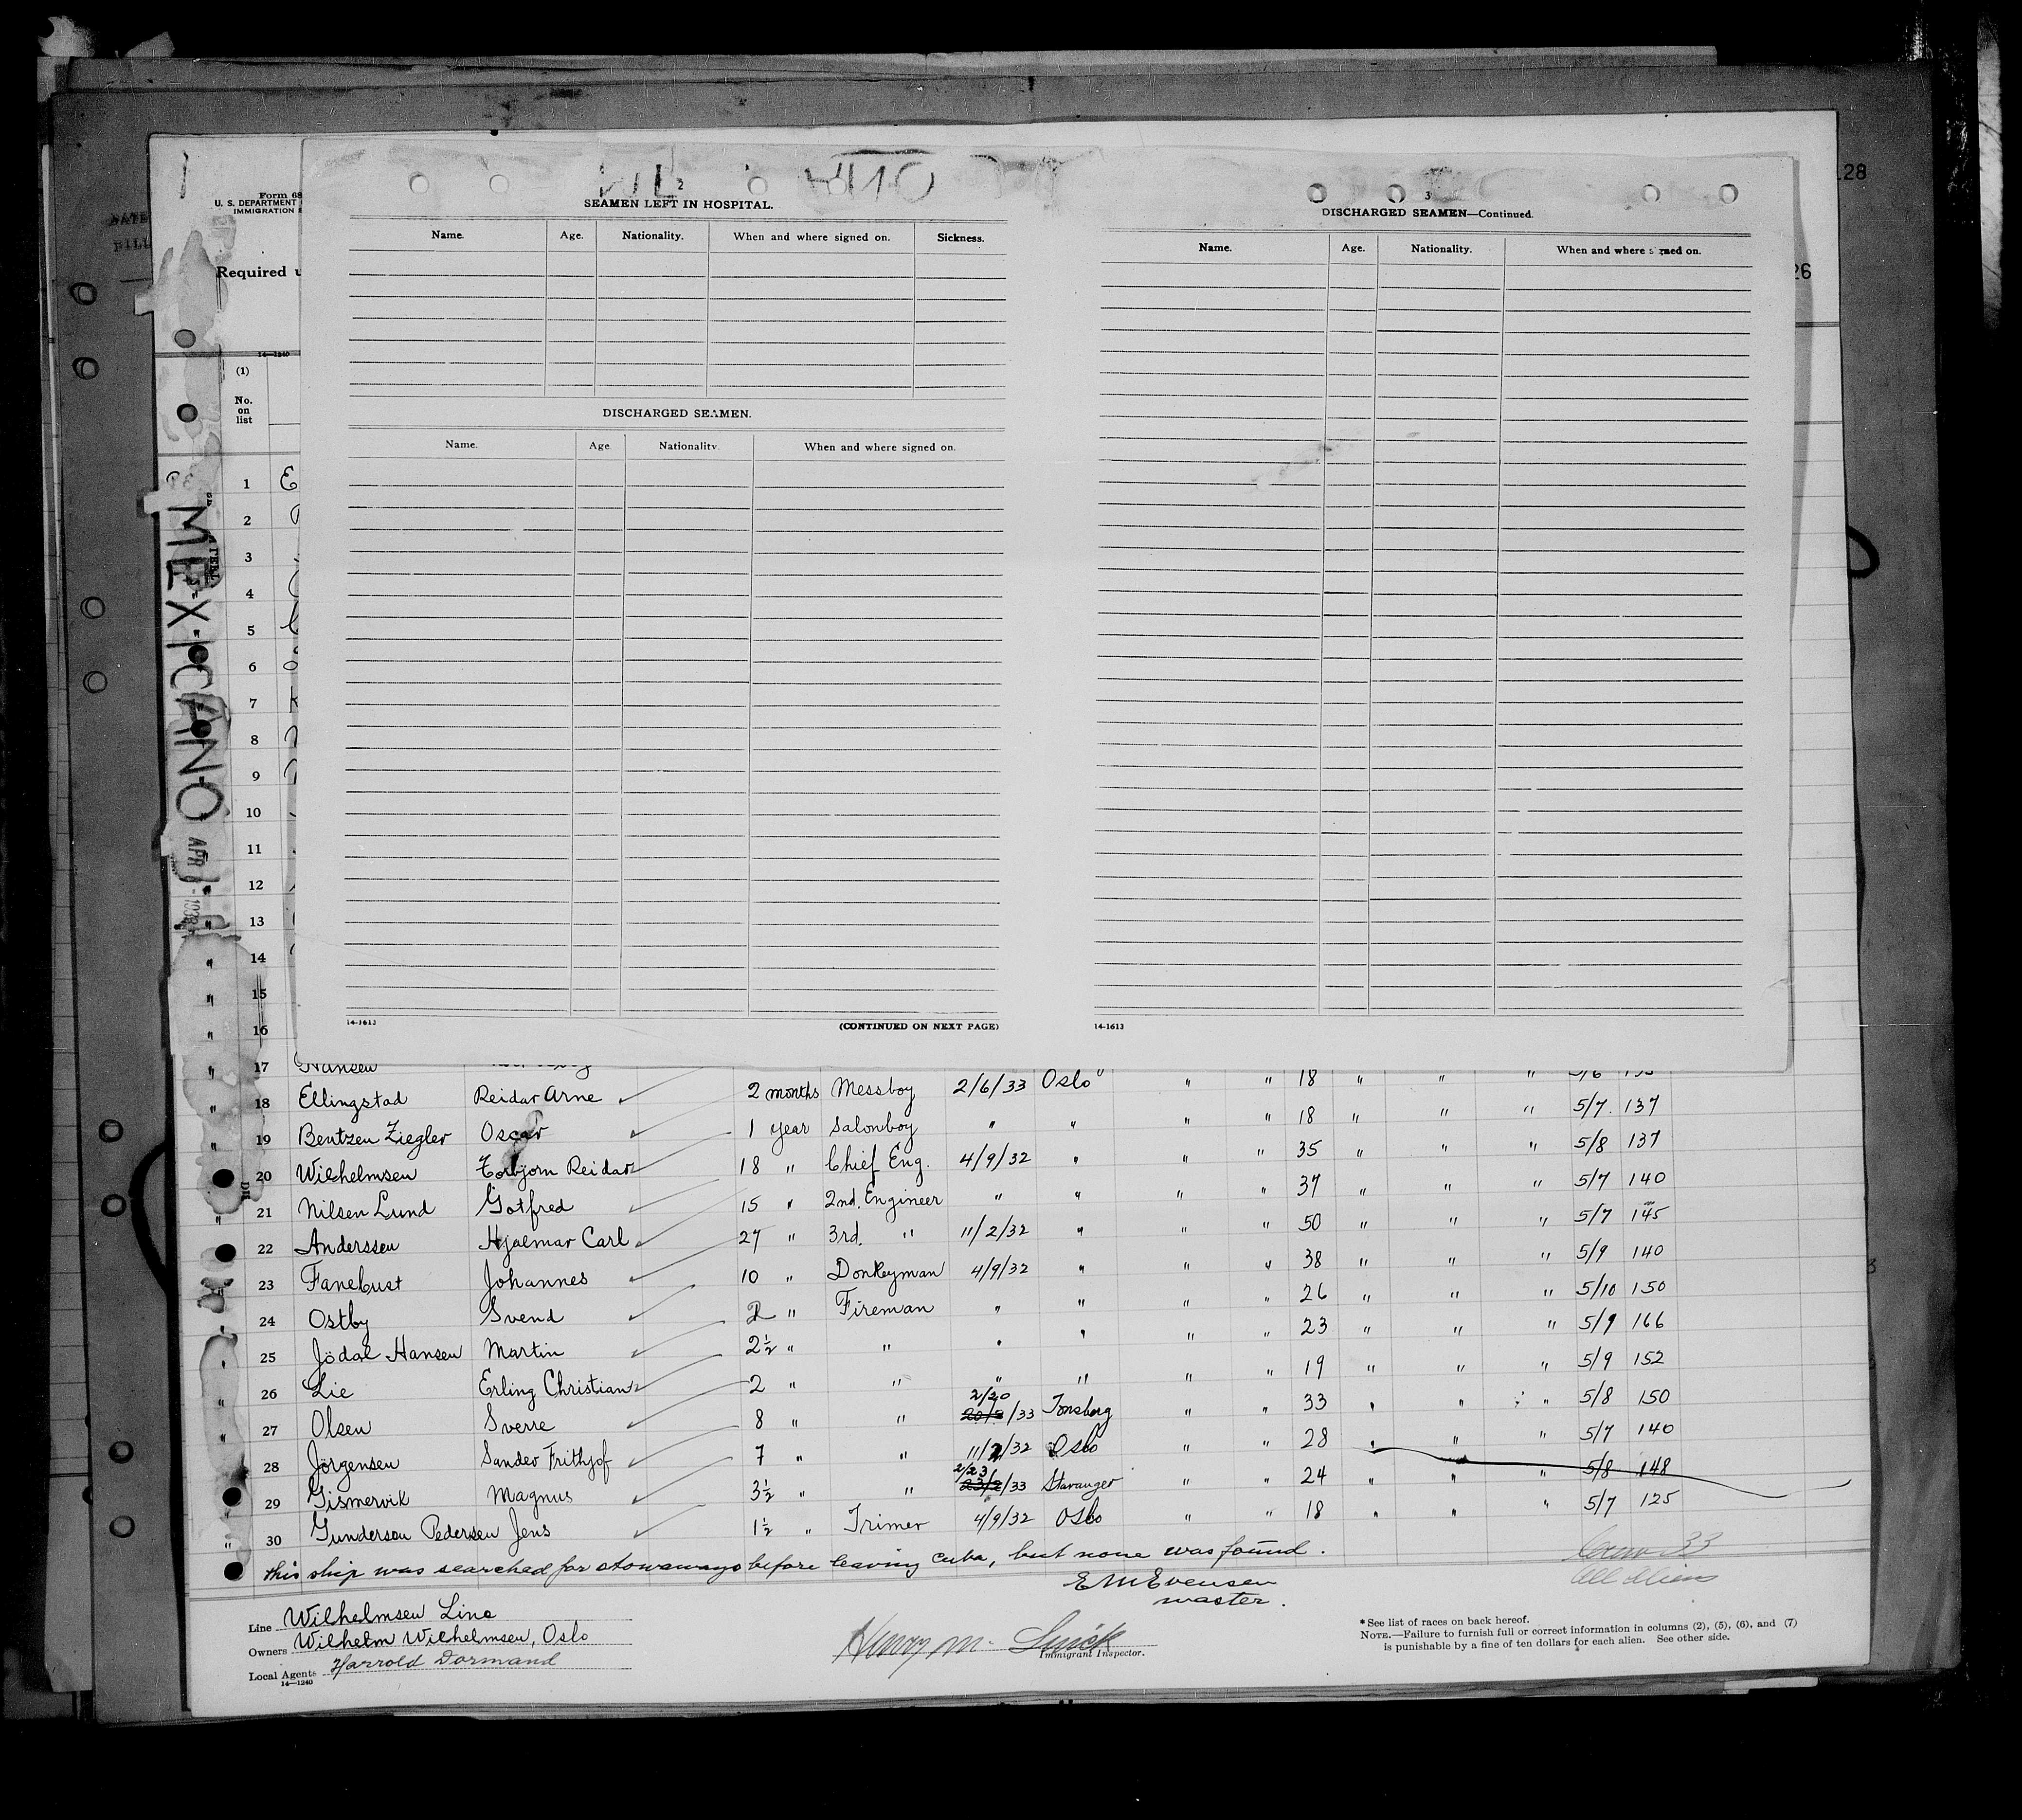 128
26
Form 68
U. S. DEPARTMENT
IMMIGRATION
Required
14—1240
(1)
No.
on
list
MEXICANO
APR
2
SEAMEN LEFT IN HOSPITAL.
Name. Age. Nationality. When and where signed on. Sickness.
DISCHARGED SEAMEN.
Name. Age. Nationality. When and where signed on.
14-1613
(CONTINUED ON NEXT PAGE)
3
DISCHARGED SEAMEN—Continued.
Name. Age. Nationality. When and where signed on.
14-1613
1 E
2
3
4
5
6
7 K
8
9
10
11
12
13
14
15
16
17 Hansen
18 Ellingstad Reidar Arne 2 months Messboy 2/6/33 Oslo " " 18 " " " 5/6
19 Bentzen Ziegler Oscar 1 year Salonboy " " " " 18 " " " 5/7. 137
20 Wilhelmsen Torbjorn Reidar 18 " Chief Eng. 4/9/32 " " " 35 " " " 5/8 137
21 Nilsen Lund Gotfred 15 " 2nd. Engineer " " " " 37 " " " 5/7 140
22 Anderssen Hjalmar Carl 27 " 3rd. " 11/2/32 " " " 50 " " " 5/7 145
23 Fanebust Johannes 10 " Donkeyman 4/9/32 " " " 38 " " " 5/9 140
24 Ostby Svend 2 " Fireman " " " " 26 " " " 5/10 150
25 Jödal Hansen Martin 2½ " " " " " " 23 " " " 5/9 166
26 Lie Erling Christian 2 " " " " " " 19 " " " 5/9 152
27 Olsen Sverre 8 " " 2/20 20/2/33 Tonsberg " " 33 " " " 5/8 150
28 Jörgensen Sander Frithjof 7 " " 11/2/32 Oslo " " 28 " " " 5/7 140
29 Gismervik Magnus 3½ " " 2/23 23/2/33 Stavanger " " 24 " " " 5/8 148
30 Gunderson Pedersen Jens 1½ " Trimer 4/9/32 Oslo " " 18 " " " 5/7 125
this ship was searched for stowaways before leaving Cuba, but none was found.
E M Evensen
master.
Crew 33
All Aliens
Line Wilhelmsen Line
Owners Wilhelm Wilhelmsen, Oslo
Local Agents Harrold Dormand
14—1240
Henry M.
Immigrant Inspector.
*See list of races on back hereof.
NOTE.—Failure to furnish full or correct information in columns (2), (5), (6), and (7)
is punishable by a fine of ten dollars for each alien. See other side.